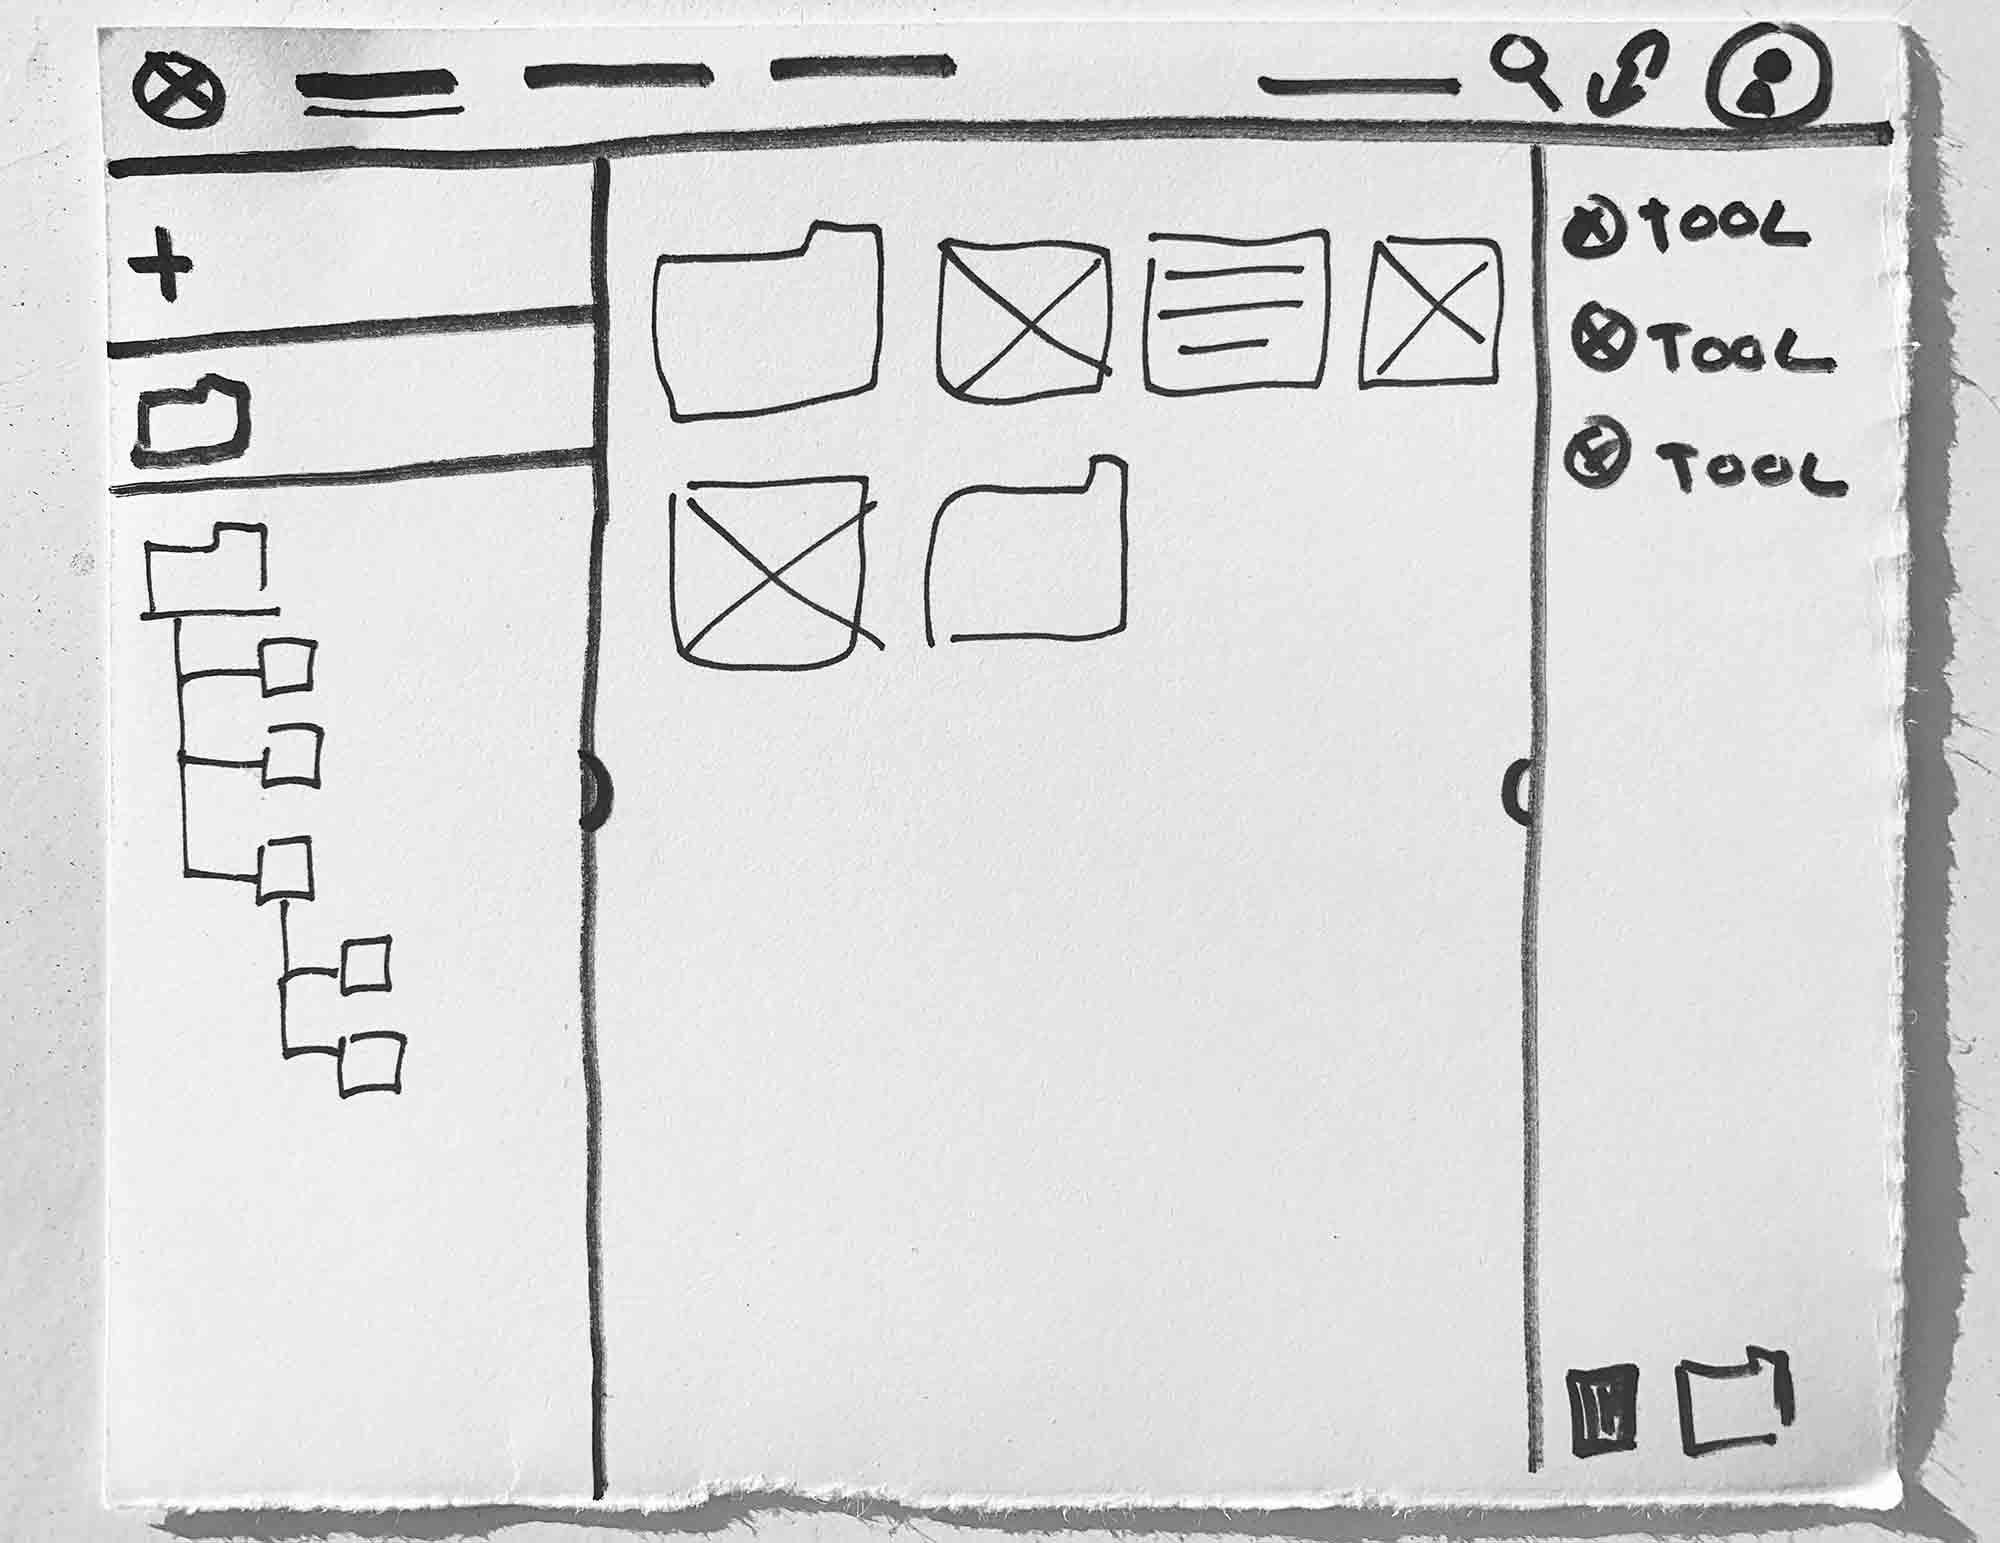 TOOL
TOOL
TOOL